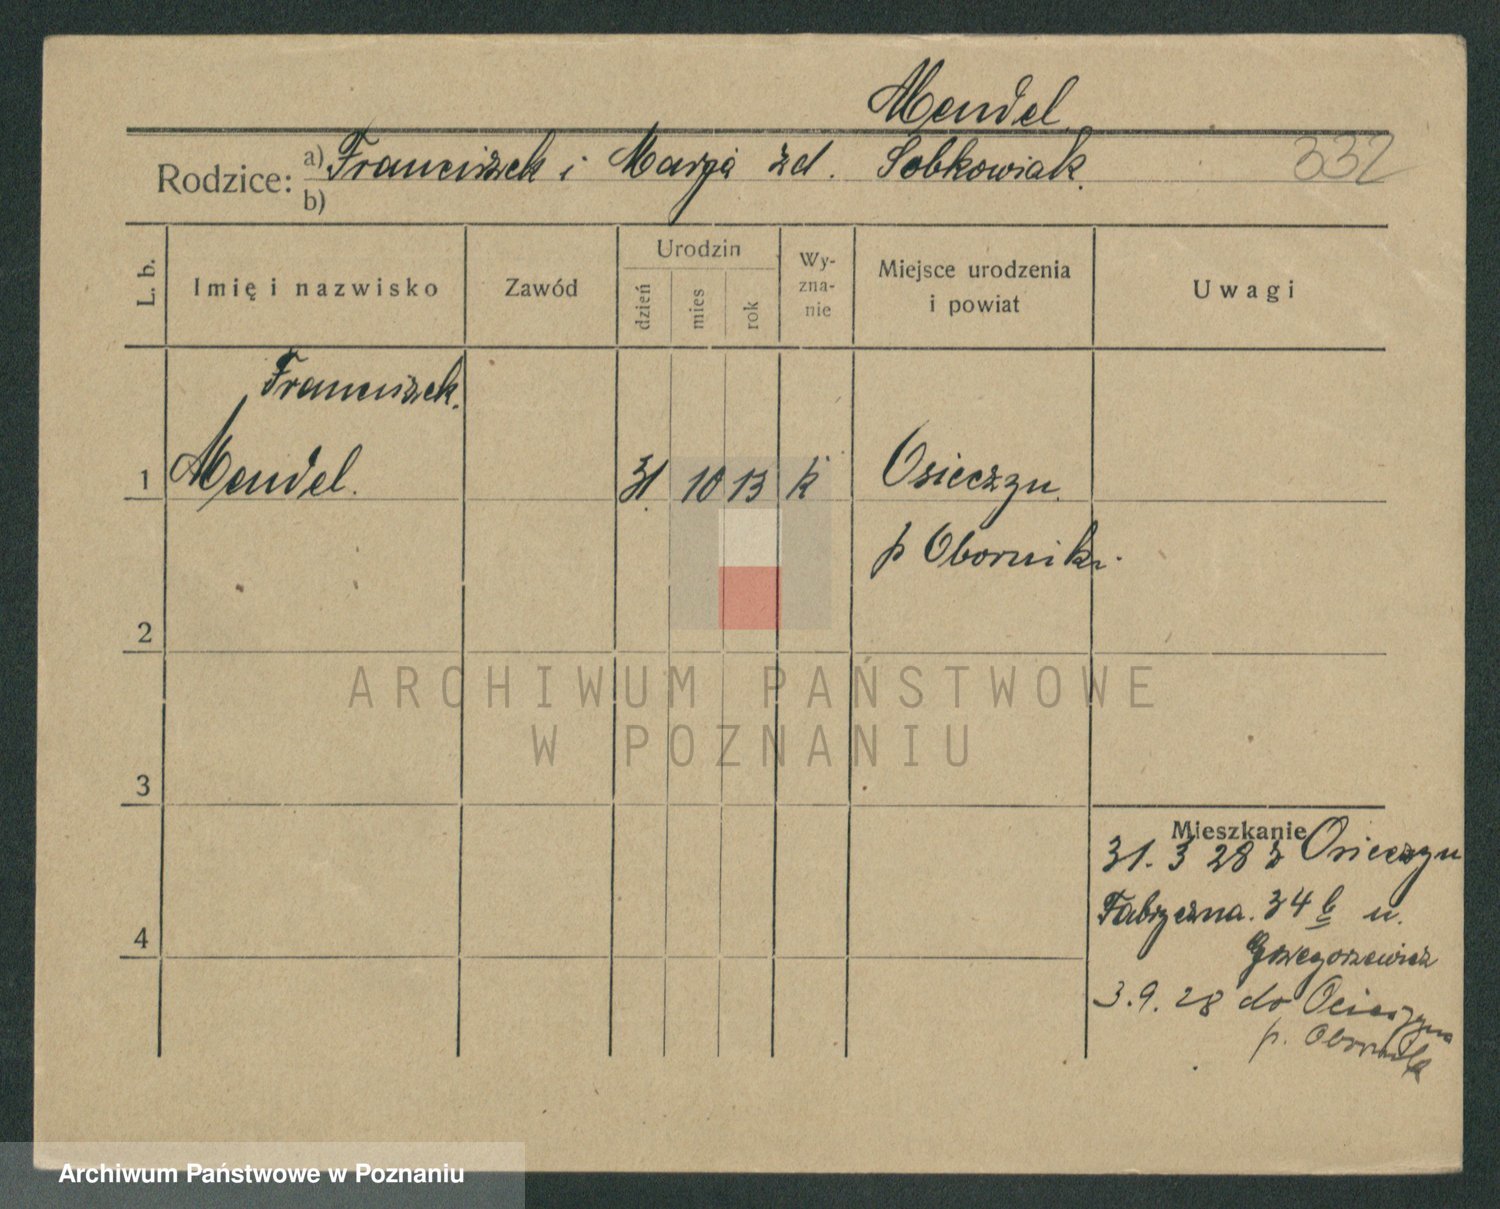 Mendel
Rodzice: a) Franciszek i Marja zd. Sobkowiak. 332
b)
L. b.
Imię i nazwisko
Zawód
Urodzin
dzień
mies
rok
Wy-
zna-
nie
Miejsce urodzenia
i powiat
Uwagi
Franciszek.
1 Mendel. 31. 10 13 k Osieczyn.
p Oborniki.
2
ARCHIWUM PAŃSTWOWE
W POZNANIU
3
Mieszkanie
31. 3 28 z Osieczyn
Fabryczna. 34 b u.
4
Grzegorzewicz
3.9.28 do
p. Oborniki
Archiwum Państwowe w Poznaniu